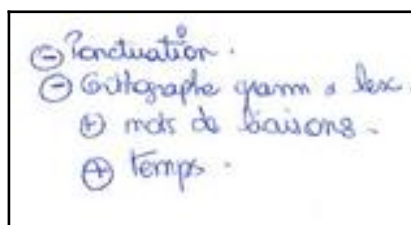 ⊖ Ponctuation.
⊖ Orthographe gramm & lex.
⊕ mots de liaisons.
⊕ temps.